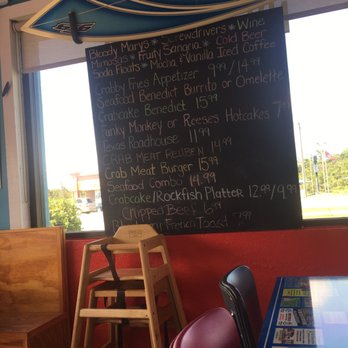 Bloody Marys * Screwdrivers * Wine
Mimosas * Fruity Sangria * Cold Beer
Soda Floats * Mocha & Vanilla Iced Coffee
Crabby Fries Appetizer 9.99/14.99
Seafood Benedict Burrito or Omelette
Crabcake Benedict 15.99
Funky Monkey or Reeses Hotcakes 7
Texas Roadhouse 11.99
CRAB MEAT REUBEN 14.99
Crab Meat Burger 15.99
Seafood Combo 14.99
Crabcake/Rockfish Platter 12.99/9.99
Chipped Beef 6.99
French Toast 7.99